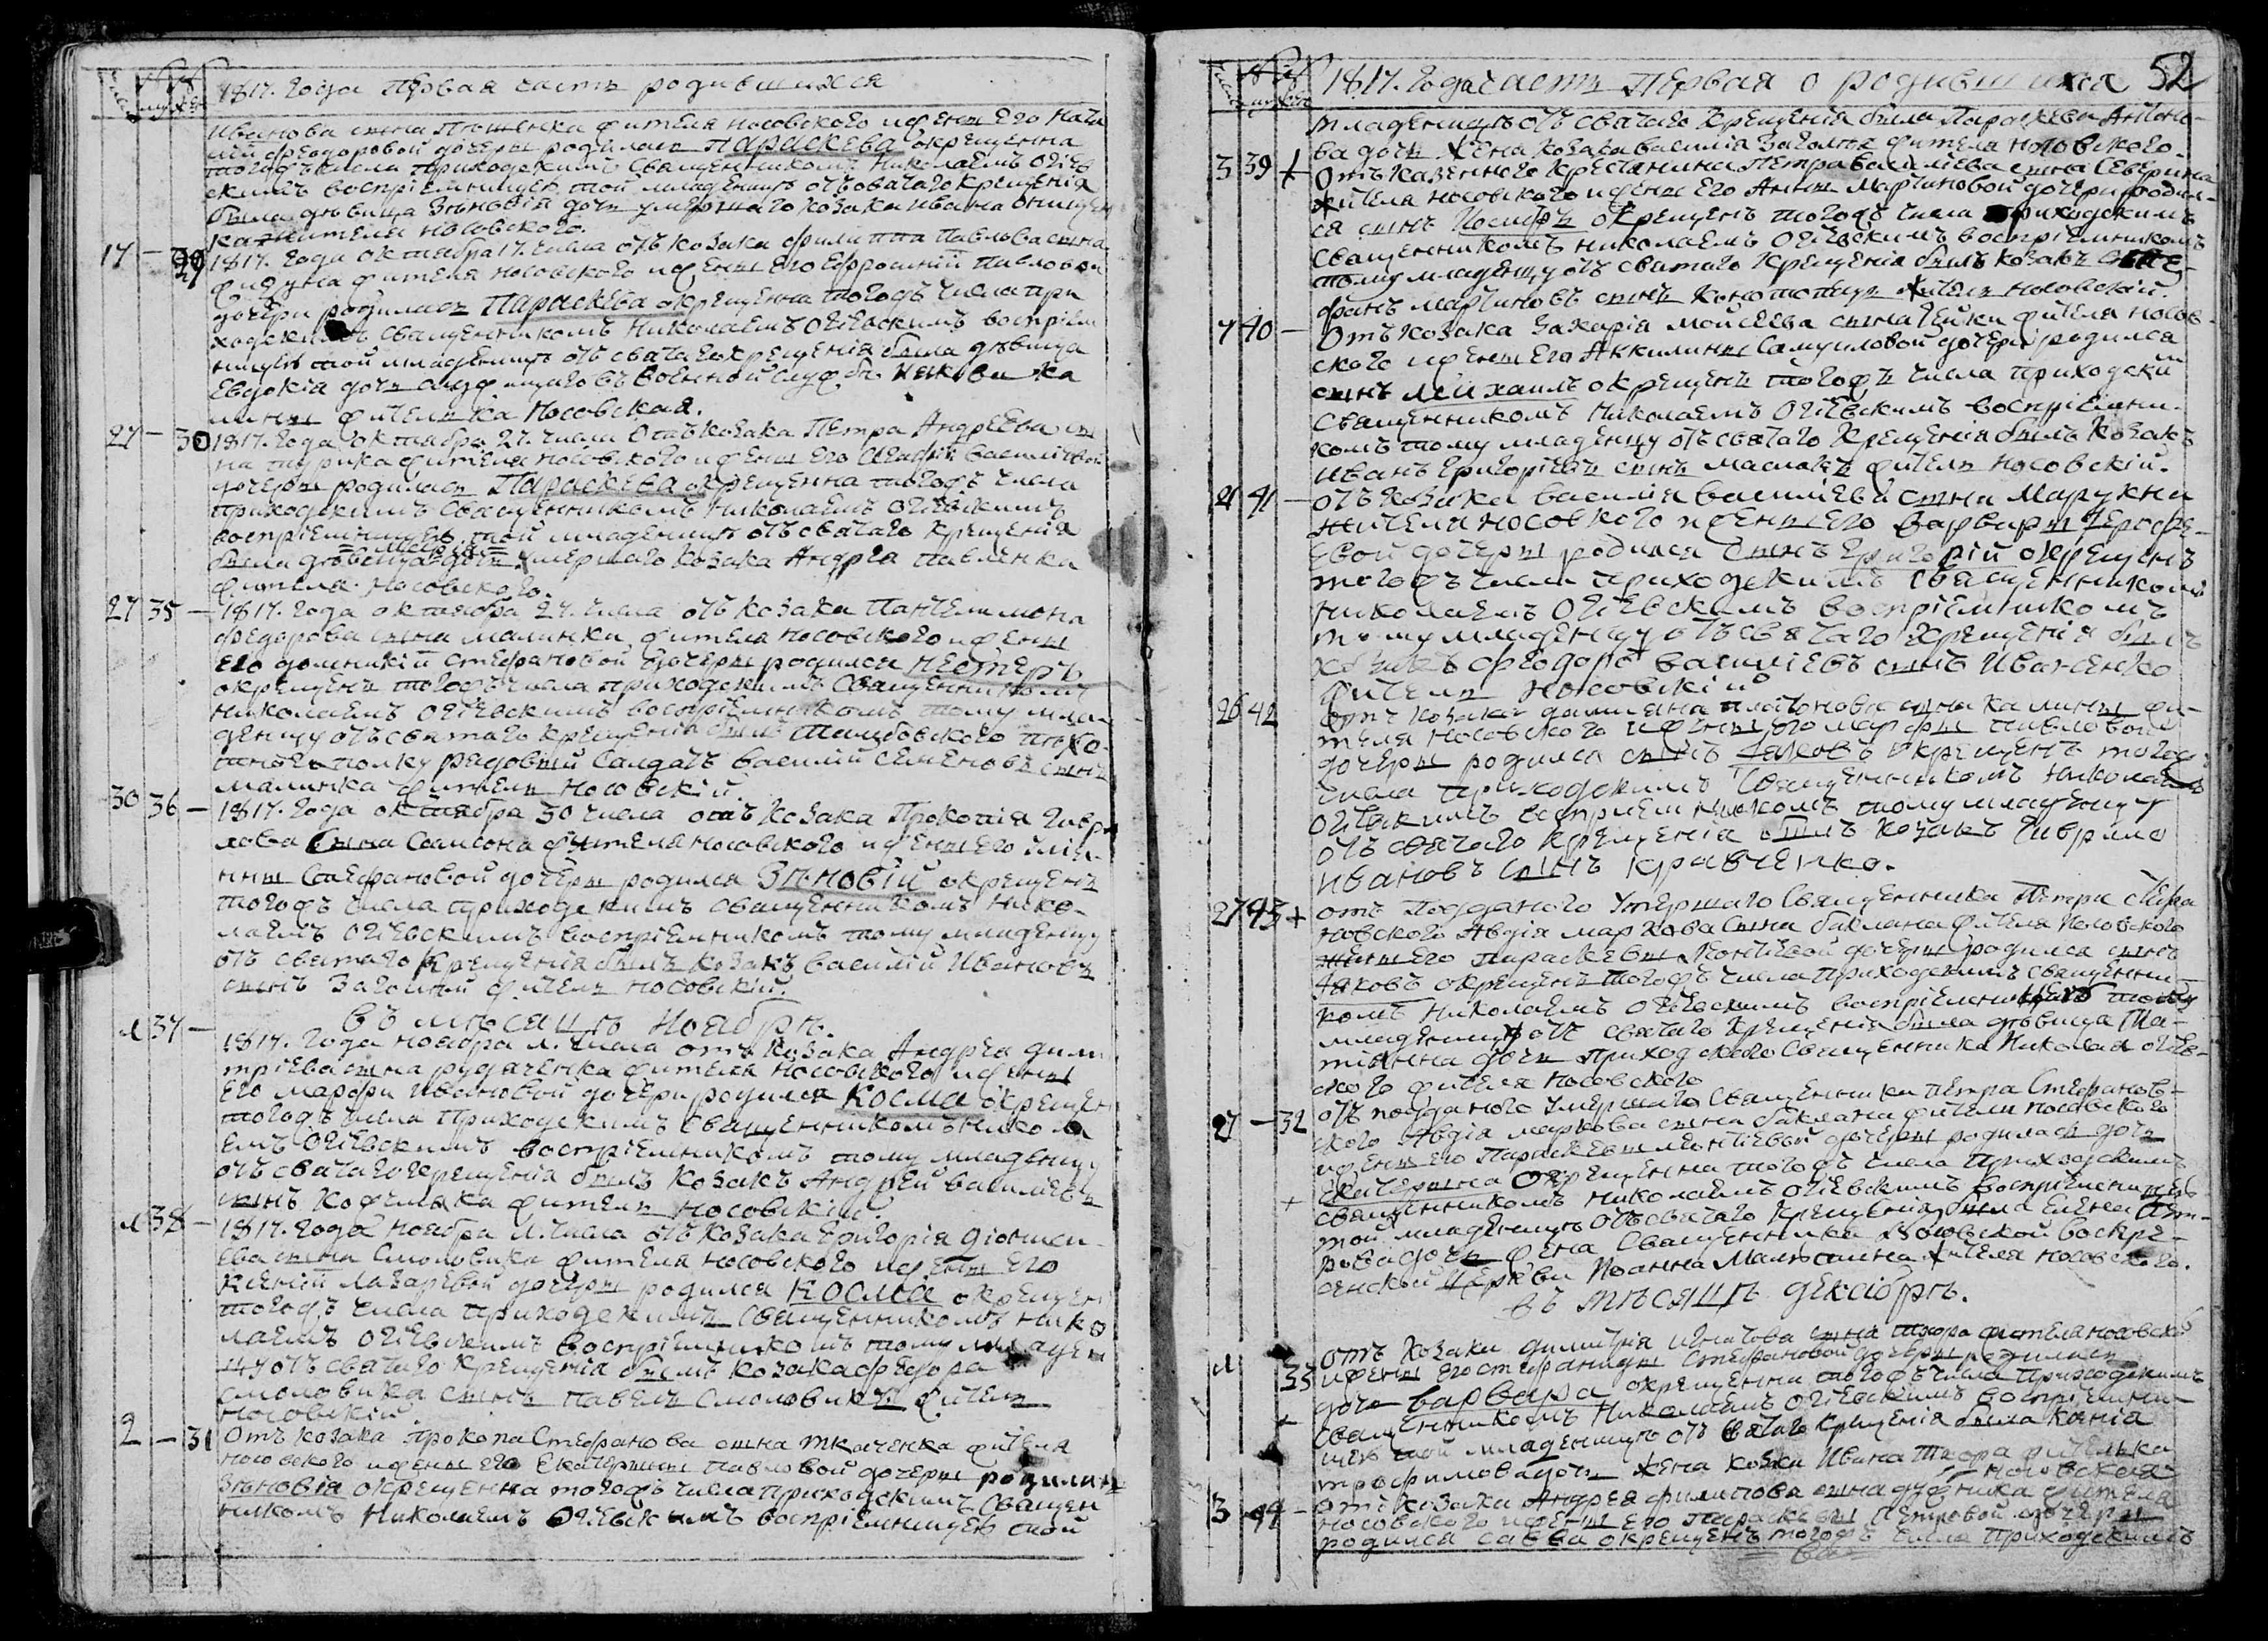 1817. года Первая часть родившихся
Иванова сына жителя носовского и жены его
Феодоровой дочеры родилась Параскева окрещенна
тогожъ числа приходскимъ Священникомъ Николаемъ
воспріемницею той младеницѣ отъ святаго крещенія
была дѣвица Зѣновія дочь умершаго козака Ивана
жителя носовского.
17 — 29 1817. года октября 17. числа отъ козака Филиппа Павлова сына
жителя носовского и жены его Ефросиніи Павловой
дочери родилась Параскева окрещенна тогожъ числа при
ходскимъ священникомъ Николаемъ Огіевскимъ воспріем
ницею той младеницѣ отъ святаго крещенія была дѣвица
Евдокія дочь въ военной службѣ
жителька Носовская.
27 — 30 1817. года октября 27. числа отъ козака Петра Андреева сы
на жителя носовского и жены его
дочеры родилась Параскева окрещенна тогожъ числа
приходскимъ Священникомъ Николаемъ Огіевскимъ
воспріемницею той младеницѣ отъ святаго крещенія
была дѣвица дочь умершаго козака Андрея Павленка
жителя носовского.
27 35 — 1817. года октября 27. числа отъ козака Пантелимона
Федорова сына Малинки жителя носовского и жены
его Домникіи Стефановой дочеры родился Нестеръ
окрещенъ тогожъ числа приходскимъ Священникомъ
Николаемъ Огіевскимъ воспріемникомъ тому мла
денцу отъ святаго крещенія былъ
полку рядовый Салдатъ Василій Семеновъ сынъ
Малинка житель Носовскій.
30 36 — 1817. года октября 30 числа отъ козака Прокопія Гаври
лова сына Самсона жителя носовского и жены его
Стефановой дочеры родился Зѣновій окрещенъ
тогожъ числа приходскимъ священникомъ Нико-
лаемъ Огіевскимъ воспріемникомъ тому младенцу
отъ святаго крещенія былъ козакъ Василій Ивановъ
сынъ житель носовскій.
Въ мѣсяцѣ Ноябрѣ.
1 37 — 1817. года ноября 1. числа отъ козака Андрея Дими
тріева сына Рудченка жителя носовского и жены
его Марфы Ивановой дочери родился Косма окрещен
тогожъ числа приходскимъ священникомъ Никола
емъ Огіевскимъ воспріемникомъ тому младенцу
отъ святаго крещенія былъ козакъ Андрей Василіевъ
сынъ Кожемяка житель носовскій.
1 38 — 1817. года ноября 1. числа отъ козака Григорія Діонисі
ева сына Смоловика жителя носовского и жены его
Ксеніи Лазаревой дочеры родился Косма окрещен
тогожъ числа приходскимъ священникомъ Нико
лаемъ Огіевскимъ воспріемникомъ тому младен
цу отъ святаго крещенія былъ козака Федора
Смоловика сынъ Павелъ Смоловикъ житель
носовскій.
2 — 31 Отъ козака Прокопа Стефанова сына Ткаченка жителя
носовского и жены его Екатерины Павловой дочеры родилась
Зѣновія окрещенна тогожъ числа приходскимъ Священ
никомъ Николаемъ Огіевскимъ воспріемницею той
1817. года часть Первая о родившихся 52
младеницѣ отъ святаго крещенія была Параскева Антоно-
ва дочь жена козака Василія жителя носовского.
3 39 + Отъ казенного крестянина Петра Василіева сына Северина
жителя носовского и жены его Анны Мартиновой дочери родил-
ся сынъ Іосифъ окрещенъ тогожъ числа приходскимъ
Священникомъ Николаемъ Огіевскимъ воспріемникомъ
тому младенцу отъ святаго крещенія былъ козакъ Сте-
фанъ Мартиновъ сынъ житель носовскій.
7 40 — Отъ козака Захарія Мойсеева сына жителя носов-
ского и жены его Аккилины Самуиловой дочеры родился
сынъ Михаилъ окрещенъ тогожъ числа приходским
священникомъ Николаемъ Огіевскимъ воспріемни-
комъ тому младенцу отъ святаго крещенія былъ козакъ
Иванъ Григоріевъ сынъ житель носовскій.
21 41 — Отъ козака Василія Василіева сына
жителя носовского и жены его Варвары
дочеры родился сынъ Григорій окрещенъ
тогожъ числа приходскимъ священникомъ
Николаемъ Огіевскимъ воспріемникомъ
тому младенцу отъ святаго крещенія былъ
козакъ Феодоръ Василіевъ сынъ Иваненко
житель носовскій.
26 42 Отъ козака Даміяна Платонова сына Калины жи-
теля носовского и жены его Марфы Павловой
дочеры родился сынъ Іаковъ окрещенъ тогожъ
числа приходскимъ Священникомъ Николаемъ
Огіевскимъ воспріемникомъ тому младенцу
отъ святаго крещенія былъ козакъ Гаврило
Ивановъ сынъ Кравченко.
27 43 + Отъ подданого умершаго Священника Петра Стефа
новского Авдія Маркова сына Баклана жителя носовского
жены его Параскевы Леонтіевой дочеры родился сынъ
Іаковъ окрещенъ тогожъ числа приходскимъ священни-
комъ Николаемъ Огіевскимъ воспріемницею тому
младенцу отъ святаго крещенія была дѣвица Та-
тіянна дочь приходского Священника Николая Огіев-
ского жителя носовского
27 — 32 Отъ подданого умершаго Священника Петра Стефанов-
ского Авдія Маркова сына Баклана жителя носовского
и жены его Параскевы Леонтіевой дочеры родилась дочь
Екатерина окрещенна тогожъ числа приходскимъ
+ священникомъ Николаемъ Огіевскимъ воспріемницею
той младеницѣ отъ святаго крещенія была Елена Пет-
рова дочь жена Священника Носовской Воскре-
сенской Церкви Іоанна жителя носовского.
Въ мѣсяцѣ декабрѣ.
1 33 Отъ козака Димитрія Игнатова сына Тхора жителя носовского
и жены его Стефаниды Стефановой дочеры родилась
дочь Варвара окрещенна тогожъ числа приходскимъ
+ священникомъ Николаемъ Огіевскимъ воспріемни-
цею той младеницѣ отъ святаго крещенія была
Трофимова дочь жена козака Ивана Тхора жителька
носовская
3 44 — Отъ козака Андрея Филипова сына жителя
носовского и жены его Параскевы Петровой дочеры
родился Савва окрещенъ тогожъ числа приходскимъ